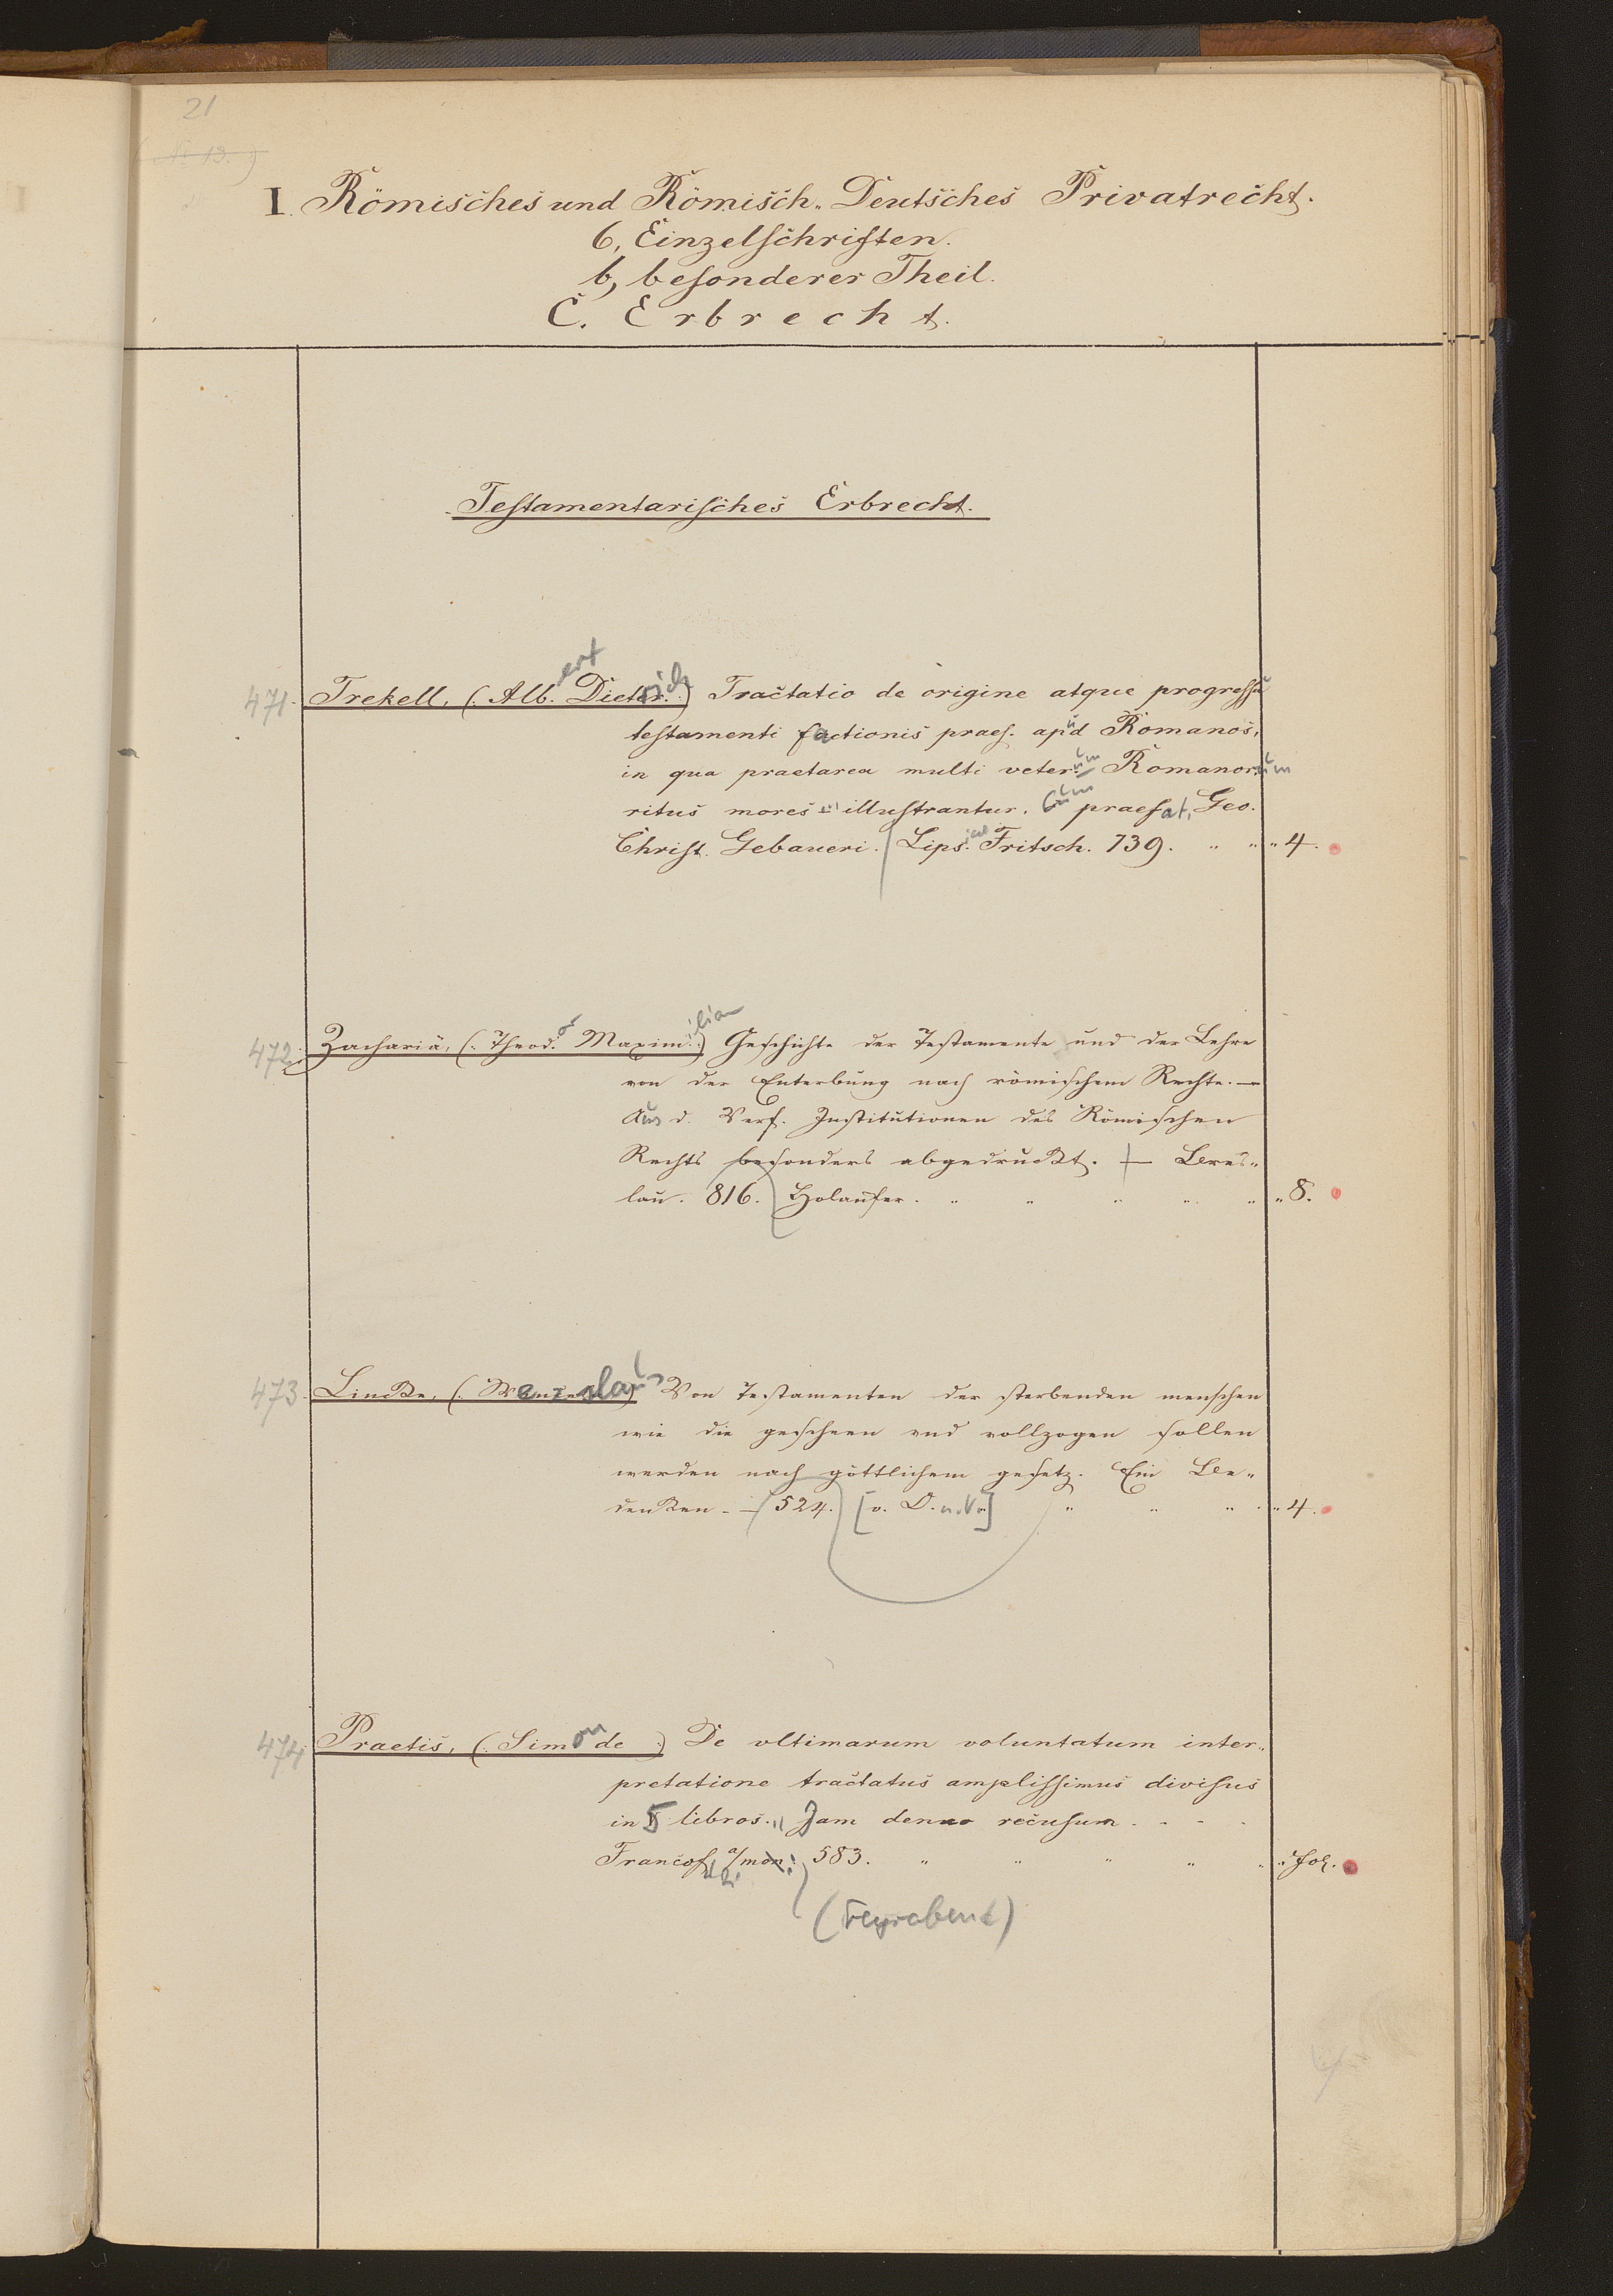 21
(No 19.)
I. Römisches und Römisch-Deutsches Privatrecht.
6, Einzelschriften.
b, besonderer Theil.
C. Erbrecht.
Testamentarisches Erbrecht.
471. Trekell, (: Albert Dietrich :) Tractatio de origine atque progressu
testamenti factionis praes. apud Romanos,
in qua praetarea multi veterum Romanorum
ritus mores illustrantur. Cum praefat. Geo.
Christ. Gebaueri. Lipsiae Fritsch. 739. " " " 4.
472. Zachariä, (: Theodor Maximilian :) Geschichte der Testamente und der Lehre
von der Enterbung nach römischem Rechte. —
Aus d. Verf. Institutionen des Römischen
Rechts besonders abgedruckt. — Bres-
lau. 816. Holäufer. " " " " " " 8.
473. Lincke, (: Wenzeslaus :) Von Testamenten der sterbenden menschen
wie die gescheen vnd vollzogen sollen
werden nach göttlichem gesetz. Ein Be-
dencken. — 524. [o. O. u. V.] " " " " 4.
474. Praetis, (: Simon de :) De vltimarum voluntatum inter-
pretatione tractatus amplissimus divisus
in 5 libros. Jam denuo recusum . . . .
Francof. a/M. 583. " " " " " " fol.
(Feyrabend)